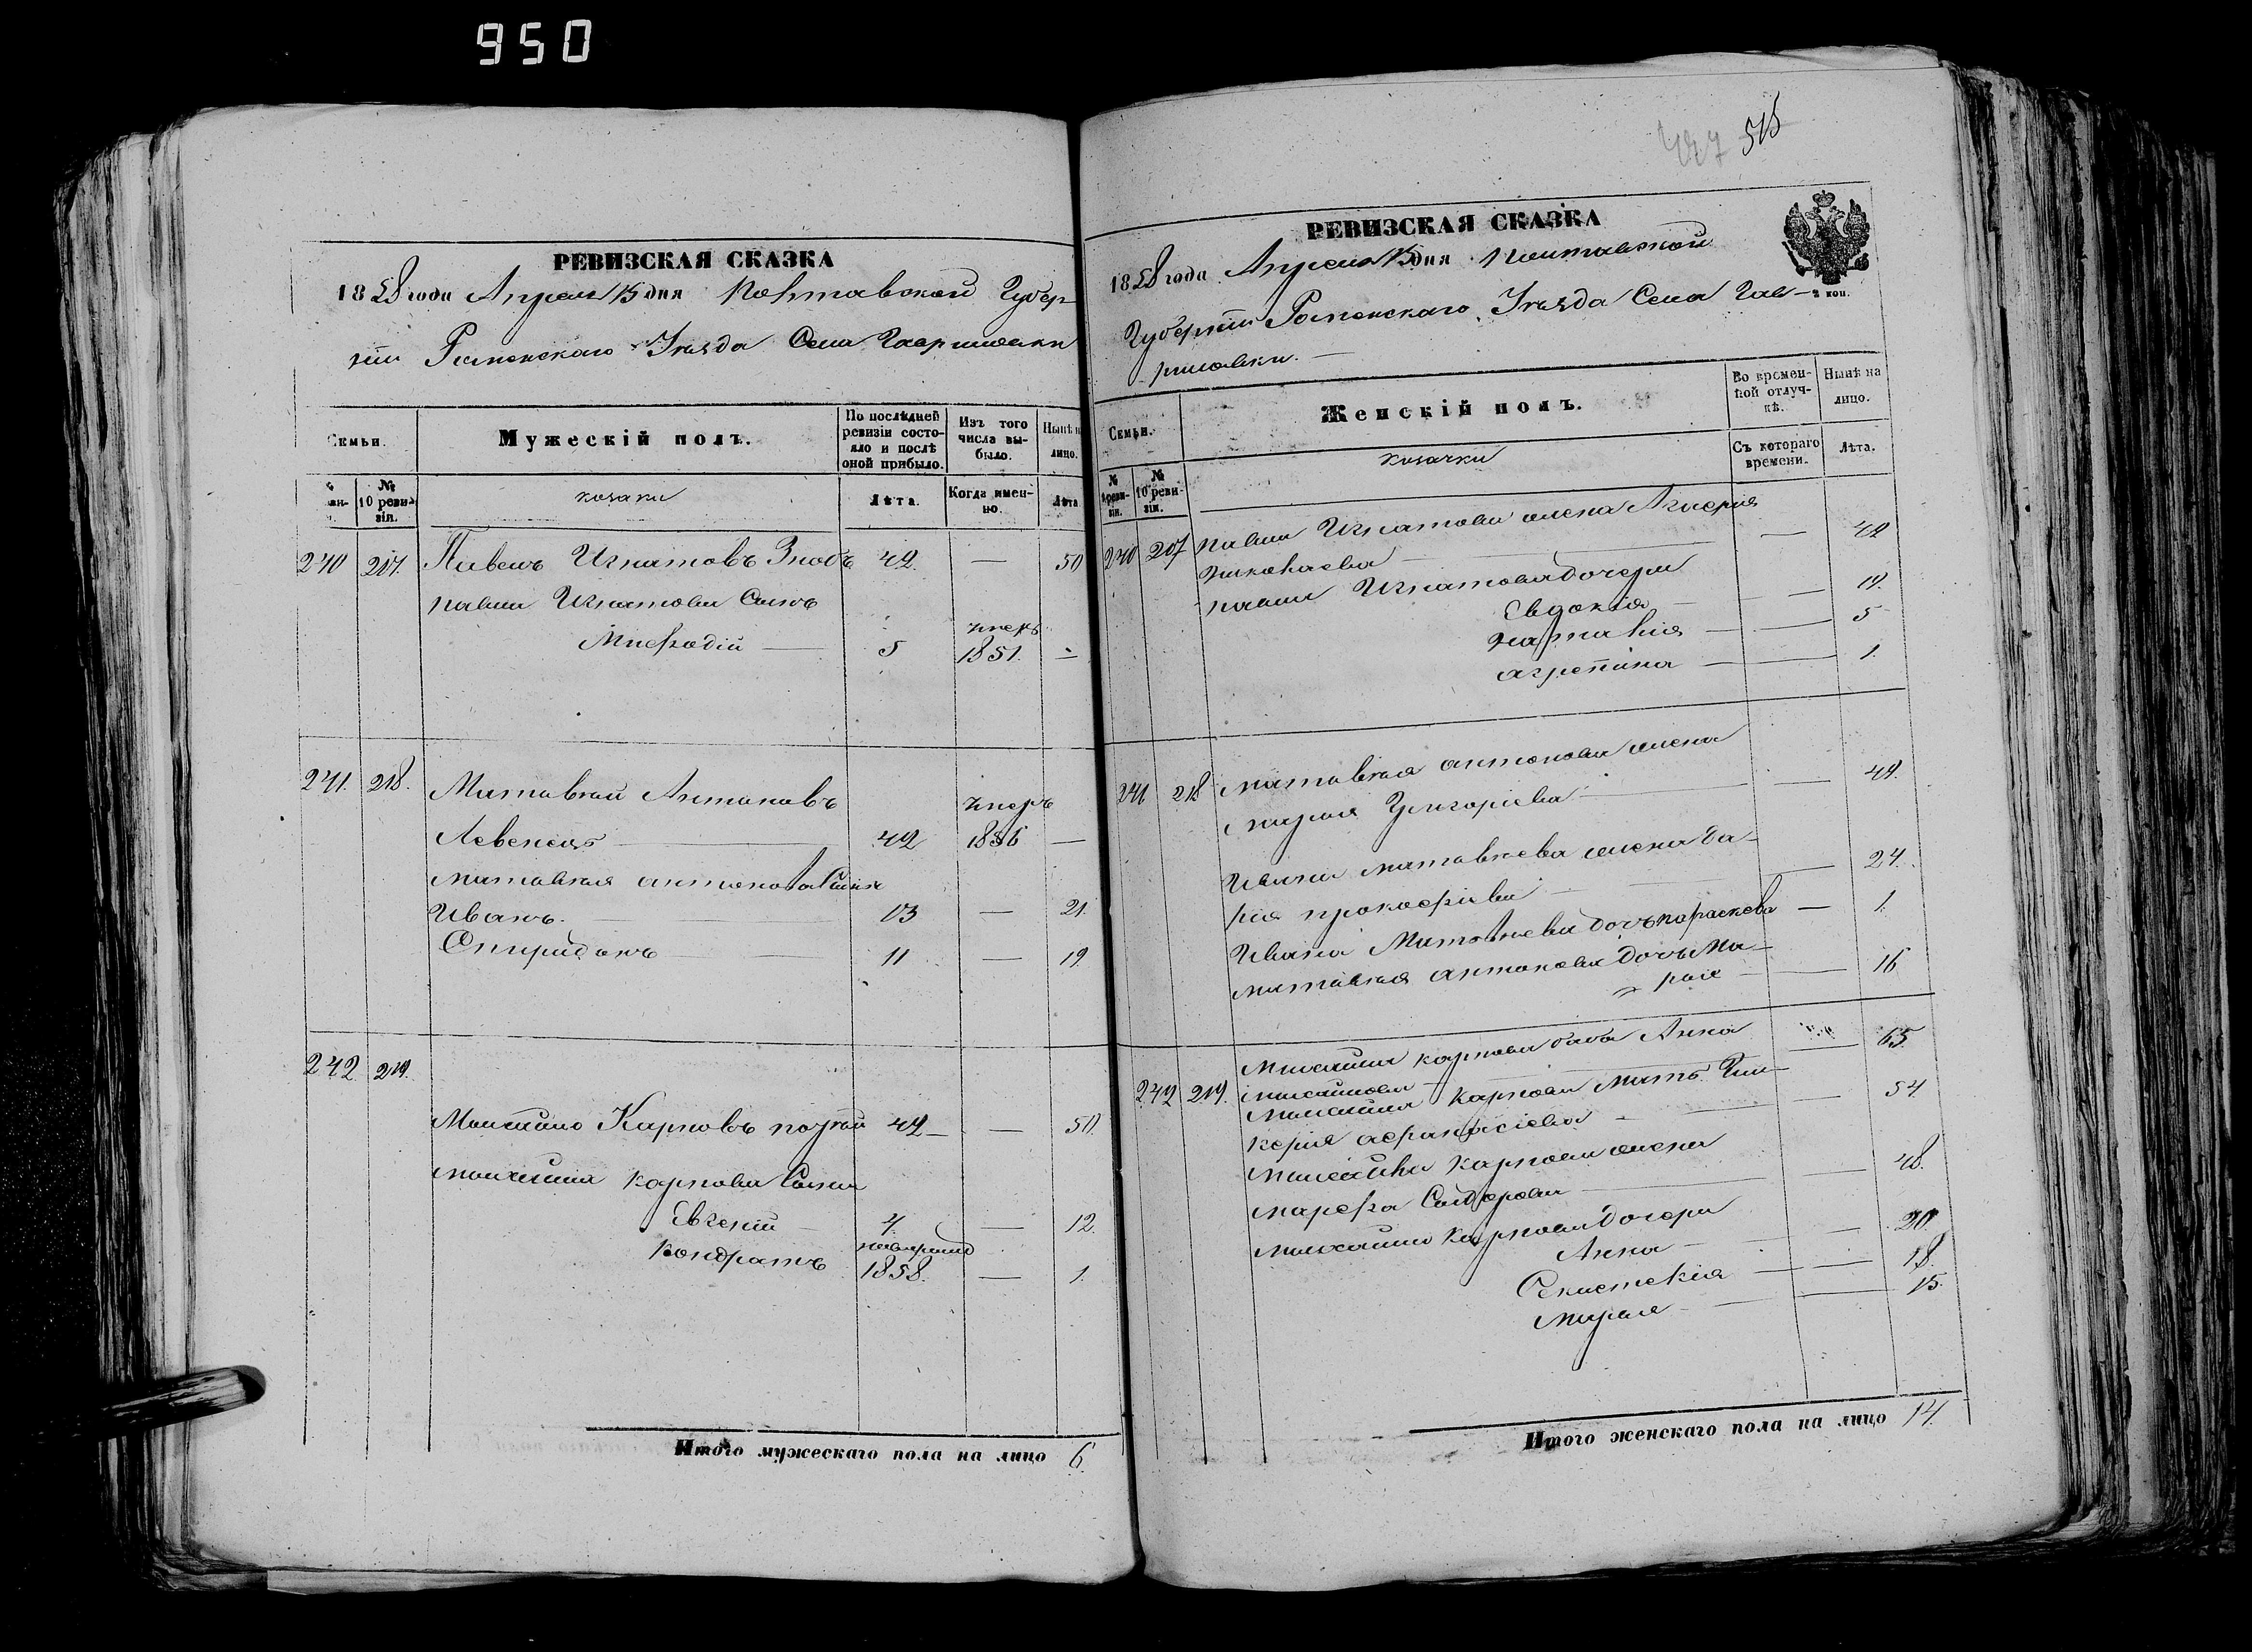 950
РЕВИЗСКАЯ СКАЗКА
1858 года Апреля 15 дня Полтавской Губер-
ніи Роменскаго Уезда Села Гавришовки
Семьи.
Мужескій полъ.
По послѣдней ревизіи состо-яло и послѣ оной прибыло.
Изъ того числа вы-было.
Нынѣ на лицо.
№ 10 реви-зіи.
козаки
Лѣта.
Когда имен-но.
Лѣта
240 217. Павелъ Игнатовъ 42. — 50
Павла Игнатова Сынъ
умеръ
Мефодій — 5 1851. —
241. 218. Матвѣй Антоновъ умеръ
Левенецъ — 42 1856 —
Матвѣя Антонова Сыны
Иванъ. — 13 — 21.
Спиридонъ — 11 — 19.
242 219.
Михайло Карповъ 42 — — 50.
Михайла Карпова Сыны
Евгеній — 4. — 12.
Кондратъ 1858. — 1.
Итого мужескаго пола на лицо 6.
515
РЕВИЗСКАЯ СКАЗКА
1858 года Апреля 15 дня Полтавской
Губерніи Роменскаго Уезда Села Гав-
ришовки. —
Семьи.
Женскій полъ.
Во времен-ной отлуч-кѣ.
Нынѣ на лицо.
№ реви-зіи.
№ 10 реви-зіи.
козачки
Съ котораго времени.
Лѣта.
240 217 Павла Игнатова жена
Николаева — — 42
Павла Игнатова дочери
Евдокія — — 19.
Наталія — — 5
Агрепина — — 1.
241 218 Матвѣя Антонова жена
Марья Григоріева — — 49.
Ивана Матвѣева жена Да-
рія Прокофіева — — 24.
Ивана Матвѣева дочь Параскева — 1.
Матвѣя Антонова дочь Ма-
рья — — 16
242 219. Михайла Карпова баба Анна 65.
Михайлова —
Михайла Карпова мать Гли-
керія Афанасіева — — 54.
Михайла Карпова жена
Марфа Сидорова — — 48.
Михайла Карпова дочери
Анна — — 20.
— — 18.
Марья — — 15.
Итого женскаго пола на лицо 14.